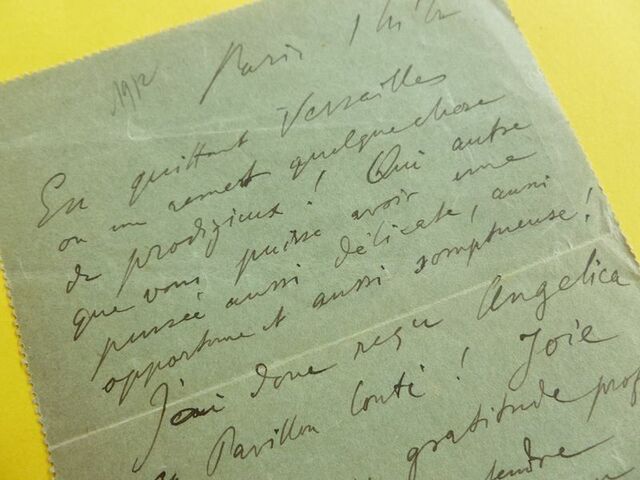 1912 Paris
En quittant Versailles
on me remet quelque chose
de prodigieux ! Qui autre
que vous puisse avoir une
pensée aussi délicate, aussi
opportune et aussi somptueuse !
J'ai donc reçu Angelica
au Pavillon Conti ! Joie
gratitude prof
tendre